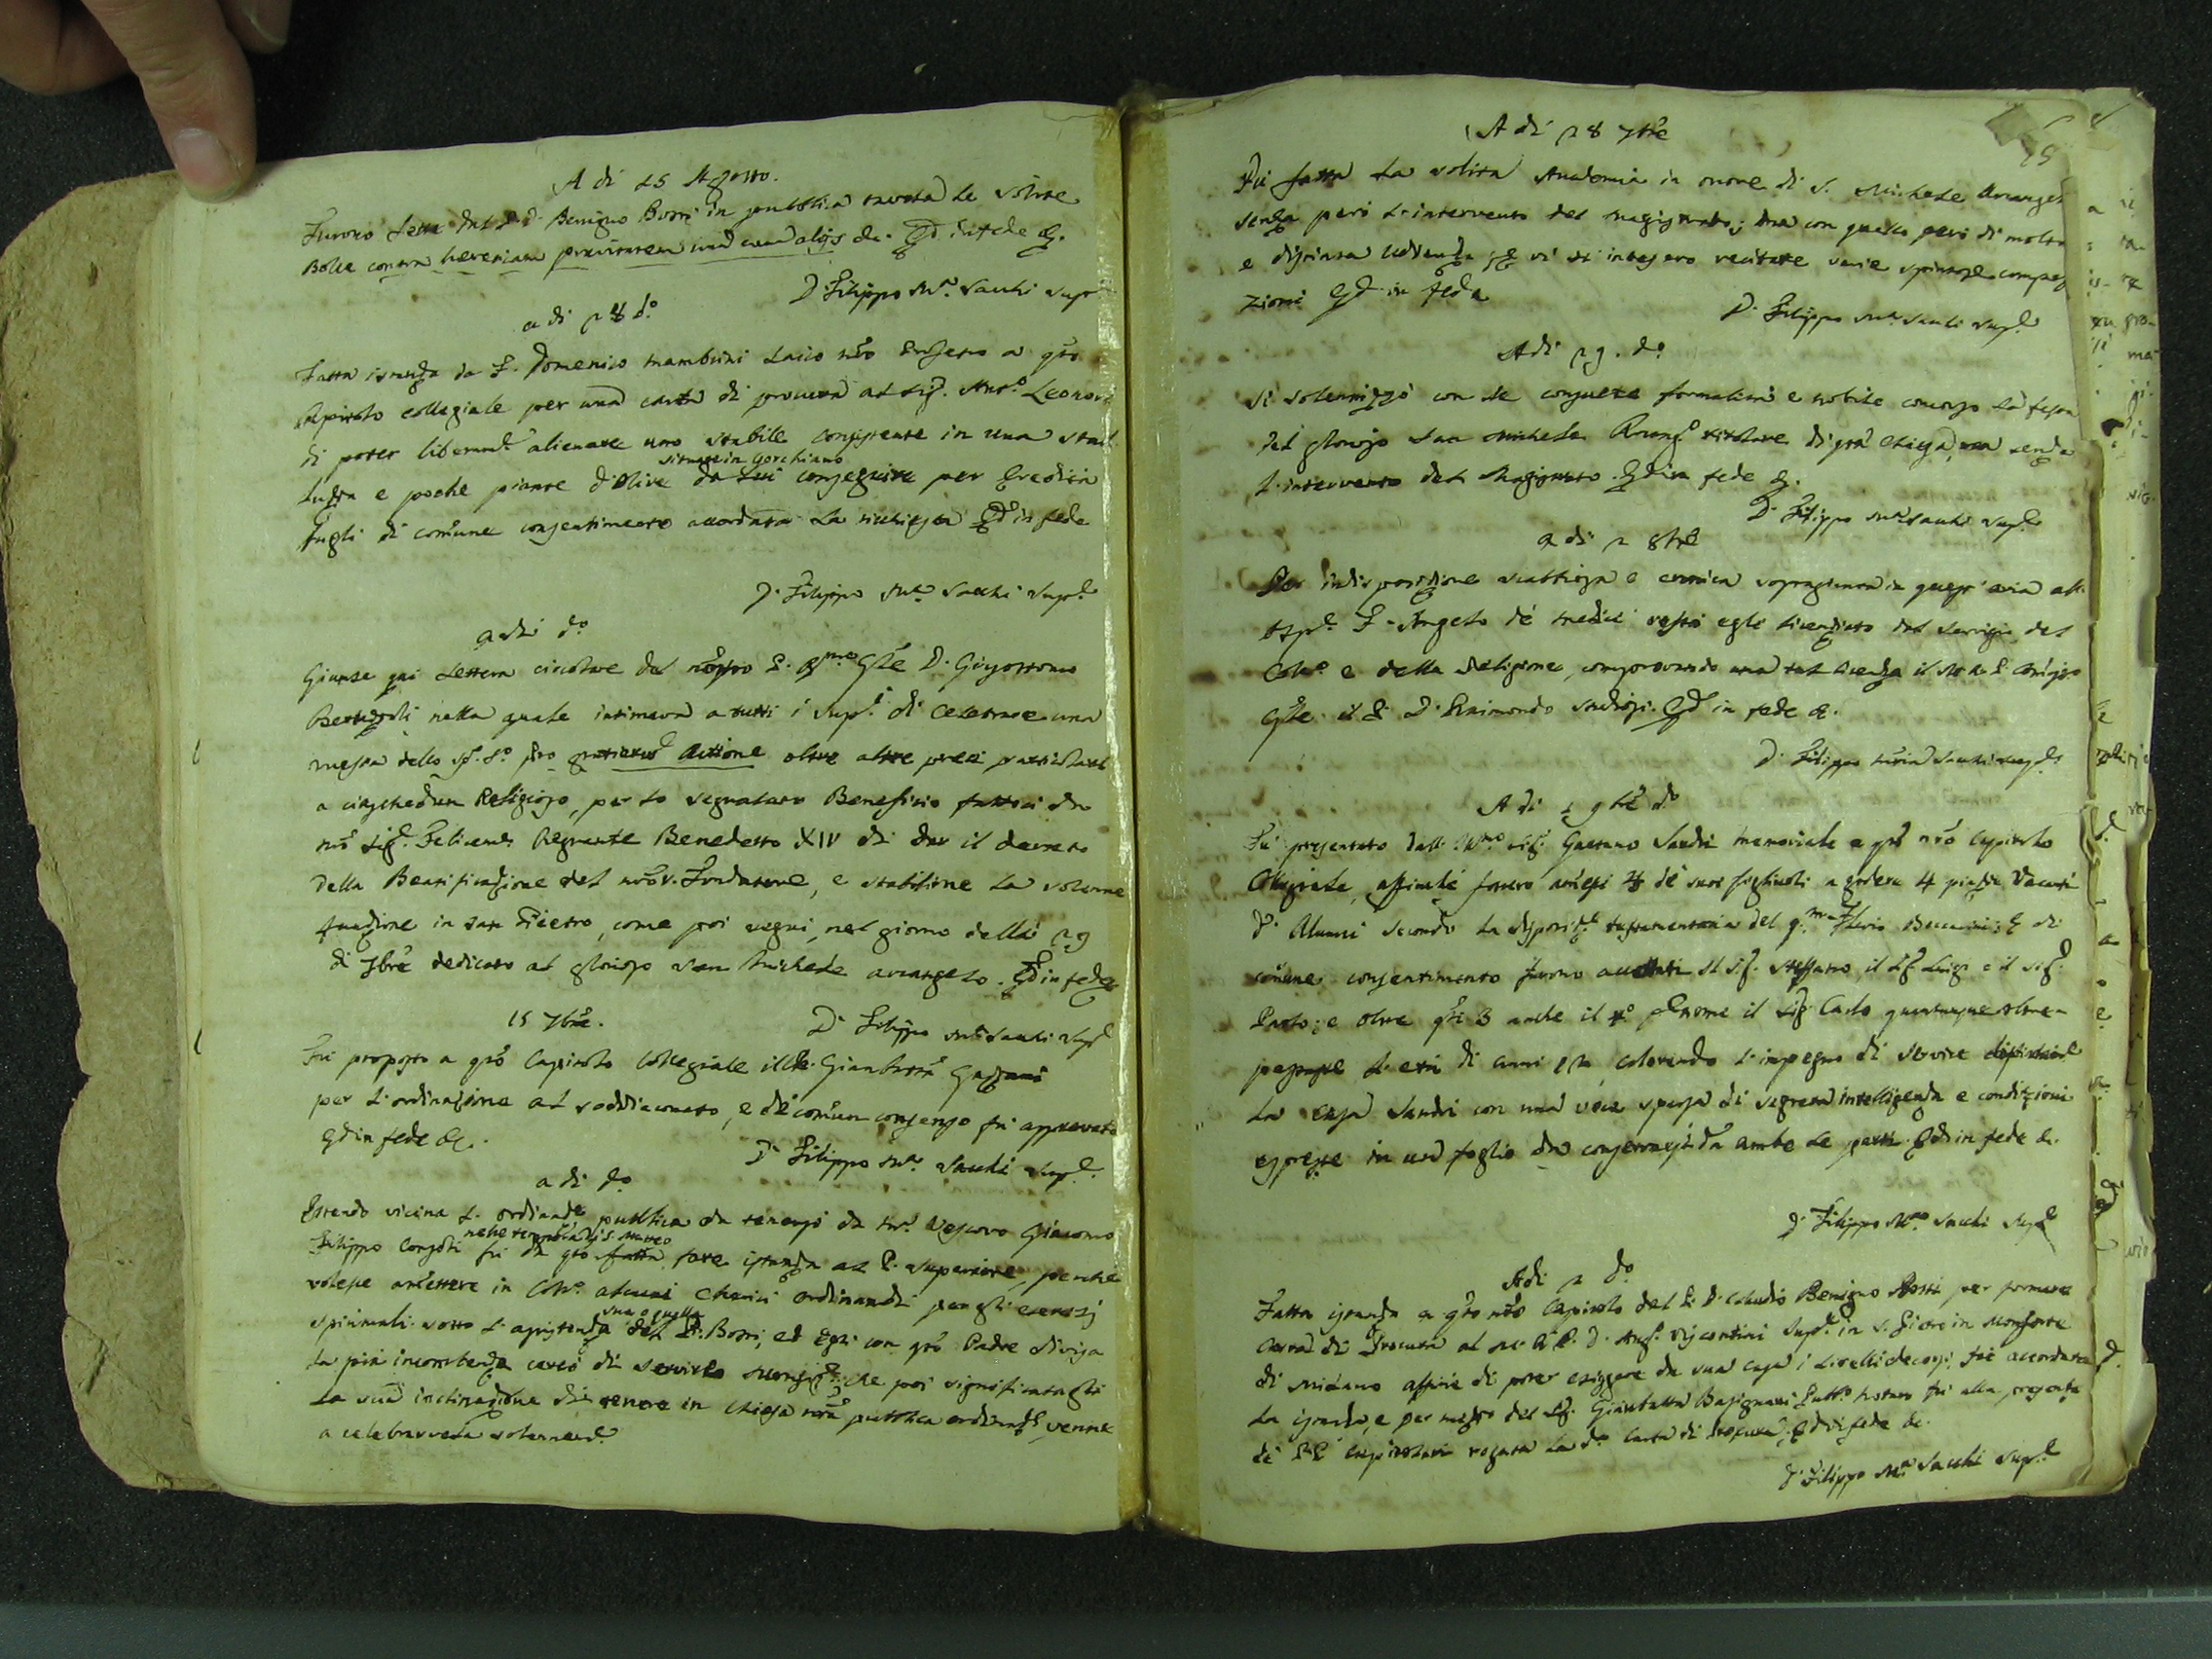 A di 25 Agosto.
Furono Lette dal P. D. Benigno Bossi in pubblica tavola le solite
Bolle contra hereticam pravitatem una cum alijs &c. Qd in fede &c.
D. Filippo Mª Sacchi Supre
a di 28 do
Fatta istanza da F. Domenico Mambrini Laico nro Professo a qto
Capitolo collegiale per una carta di procura al Sig. Anto Leonori
di poter liberamte alienare uno stabile consistente in una
e poche piante d'olive situate in Gorchiano da Lui conseguite per Eredità
fugli di comune consentimento accordata la richiesta Qd in fede
D. Filippo Mª Sacchi Supre
a di do
Giunse qui Lettera circolare del nostro P. Rmo Gñle D. Grisostomo
Bertazzoli nella quale intimava a tutti i Supri di celebrare una
messa dello Sp. So pro gratiarum Actione oltre altre preci particolari
a ciaschedun Religioso, per lo segnalato Beneficio fattoci da
nro Sigre Felicemte Regnante Benedetto XIV di dar il decreto
della Beatificazione del nro V. Fondatore, e stabilirne la solenne
funzione in San Pietro, come poi seguì, nel giorno delli 29
di 7bre dedicato al glorioso San Michele arcangelo. Qd in fede
15 7bre.
D. Filippo Mª Sacchi Supre
Fu proposto a qto Capitolo Collegiale il Ch. Giambatta
per l'ordinazione al soddiaconato, e di comun consenso fu approvato
Qd in fede &c.
D. Filippo Mª Sacchi Supre
a di do
Essendo vicina l'ordinazne pubblica da tenersi da Mr Vescovo Giacomo
Filippo nelle tempora di S. Matteo fu da qto fatta fare istanza al P. Superiore, perché
volesse ammettere in Collo alcuni Cherici ordinandi per gli esercizj
spirituali sotto l'assistenza sua o quella del P. Bossi, ed egli con qto Padre divisa
la pia incombenza cercò di servirlo che poi significatagli
la sua inclinazione di tenere in Chiesa nra pubblica ordinazne, venne
a celebrarvela solennemte
A di 28 7bre
Fu fatta la solita Accademia in onore di S. Michele Arcangelo
senza però l'intervento del magistrato; ma con quello però di molta
e distinta Udienza, e vi si intesero recitare varie spiritose compo
zioni Qd in fede
D. Filippo Mª Sacchi Supre
A di 29. do
Si solennizzò con le consuete formalità e nobile concorso la festa
del glorioso San Michele Arcango titolare di qta Chiesa, ma senza
l'intervento del Magistrato. Qd in fede &c.
D. Filippo Mª Sacchi Supre
a di 2 8bre
Per indisposizione scabbiosa e cronica sopragiunta in quest'aria all'
F. Angelo de Medici restò egli licenziato dal servigio del
Collo e della Religione, comprovando una tal licenza il M. R. P.
Gñle il P. D. Raimondo Qd in fede &c.
D. Filippo Maria Sacchi Supre
A di 2 9bre do
Fu presentato dall'Illmo Sig. Gaetano Sandri memoriale a qto nro Capitolo
Collegiale, affinchè fossero ammessi 4 de suoi figliuoli a godere 4 piazze vacanti
d'Alunni secondo la disposizne testamentaria del qm Flavio; e di
comune consentimento furono accettati il Sig. Steffano, il Sig. Luigi e il Sig.
Paolo; e oltre qti 3 anche il 4o per nome il Sig. Carlo quantunque oltre-
passasse l'età di anni 12, colorendo l'impegno di servire
la casa Sandri con una voce sparsa di segreta intelligenza e condizioni
espresse in un foglio da conservarsi da ambe le parti. Qd in fede &c.
D. Filippo Mª Sacchi Supre
A di 2 do
Fatta istanza a qto nro Capitolo del P. D. Claudio Benigno Bossi per formare
Carta di Procura al M. R. P. D. Ango Viscontini Supre in S. Pietro in Monforte
di Milano affine di poter esiggere da sua casa i Livelli decorsi, fu accordata
la istanza, e per mezzo del Sig. Giambatta Basignani Pubbo Notaro fu alla presenza
de PP. Capitolari rogata la da Carta di Procura. Qd in fede &c.
D. Filippo Mª Sacchi Supre